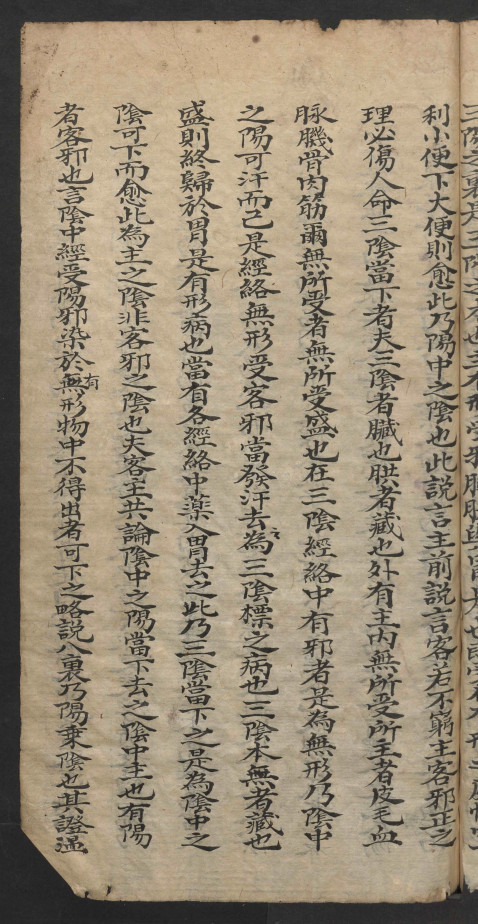 三陽之裏是三陰之本也
利小便下大便則愈此乃陽中之陰也此説言主前説言客若不窮主客邪正之
理必傷人命三陰當下者夫三陰者臟也者藏也外有主內無所受所主者皮毛血
脉骨肉筋爾無所受者無所受盛也在三陰經絡中有邪者是為無形乃陰中
之陽可汗而已是經絡無形受客邪當發汗去之為三陰標之病也三陰本無者藏也
盛則終歸於胃是有形病也當有各經絡中藥入胃去之此乃三陰當下之是為陰中之
陰可下而愈此為主之陰非客邪之陰也夫客主共論陰中之陽當下去之陰中主也有陽
者客邪也言陰中經受陽邪染於有無形物中不得出者可下之略説八裏乃陽乗陰也其證温